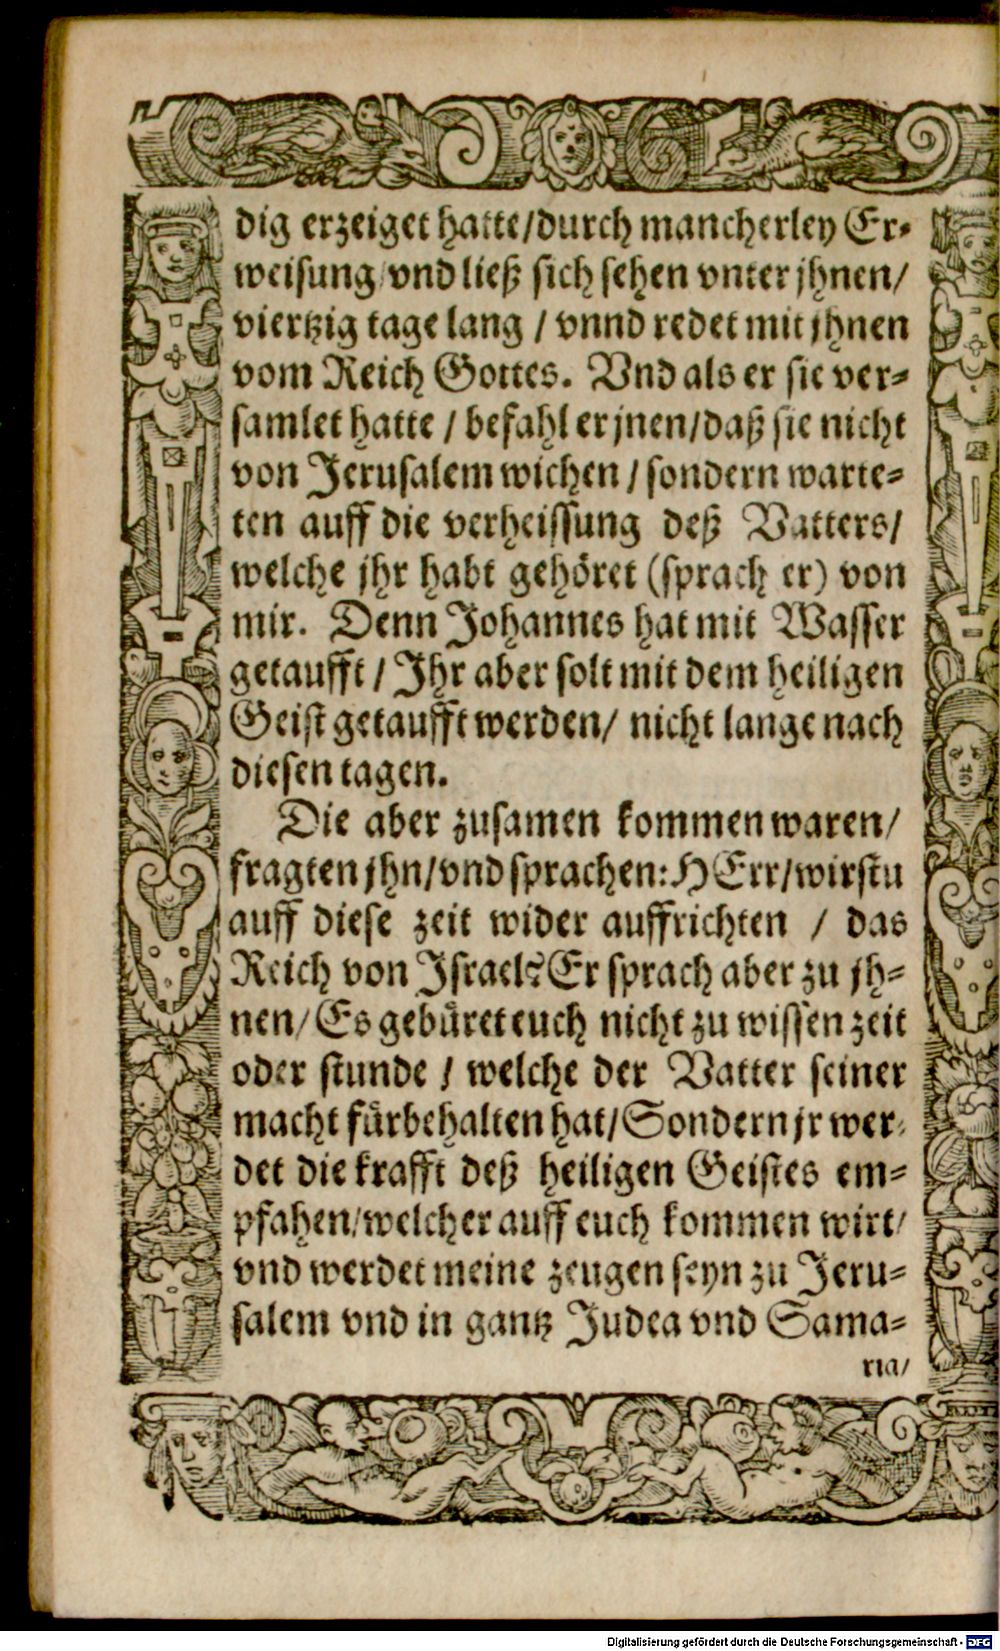 dig erzeiget hatte/durch mancherley Er-
weisung/vnd ließ sich sehen vnter jhnen/
viertzig tage lang / vnnd redet mit jhnen
vom Reich Gottes. Vnd als er sie ver-
samlet hatte / befahl er jnen/daß sie nicht
von Jerusalem wichen / sondern warte-
ten auff die verheissung deß Vatters/
welche jhr habt gehöret (sprach er) von
mir. Denn Johannes hat mit Wasser
getaufft / Jhr aber solt mit dem heiligen
Geist getaufft werden/ nicht lange nach
diesen tagen.
Die aber zusamen kommen waren/
fragten jhn/vnd sprachen: HErr/wirstu
auff diese zeit wider auffrichten / das
Reich von Jsrael? Er sprach aber zu jh-
nen/ Es gebüret euch nicht zu wissen zeit
oder stunde / welche der Vatter seiner
macht fürbehalten hat/ Sondern jr wer-
det die krafft deß heiligen Geistes em-
pfahen/welcher auff euch kommen wirt/
vnd werdet meine zeugen seyn zu Jeru-
salem vnd in gantz Judea vnd Sama-
ria/
Digitalisierung gefördert durch die Deutsche Forschungsgemeinschaft - DFG